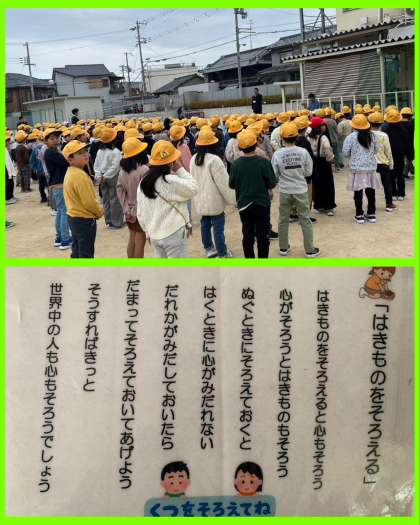 「はきものをそろえる」
はきものをそろえると心もそろう
心がそろうとはきものもそろう
ぬぐときにそろえておくと
はくときに心がみだれない
だれかがみだしておいたら
だまってそろえておいてあげよう
そうすればきっと
世界中の人も心もそろうでしょう
くつをそろえてね